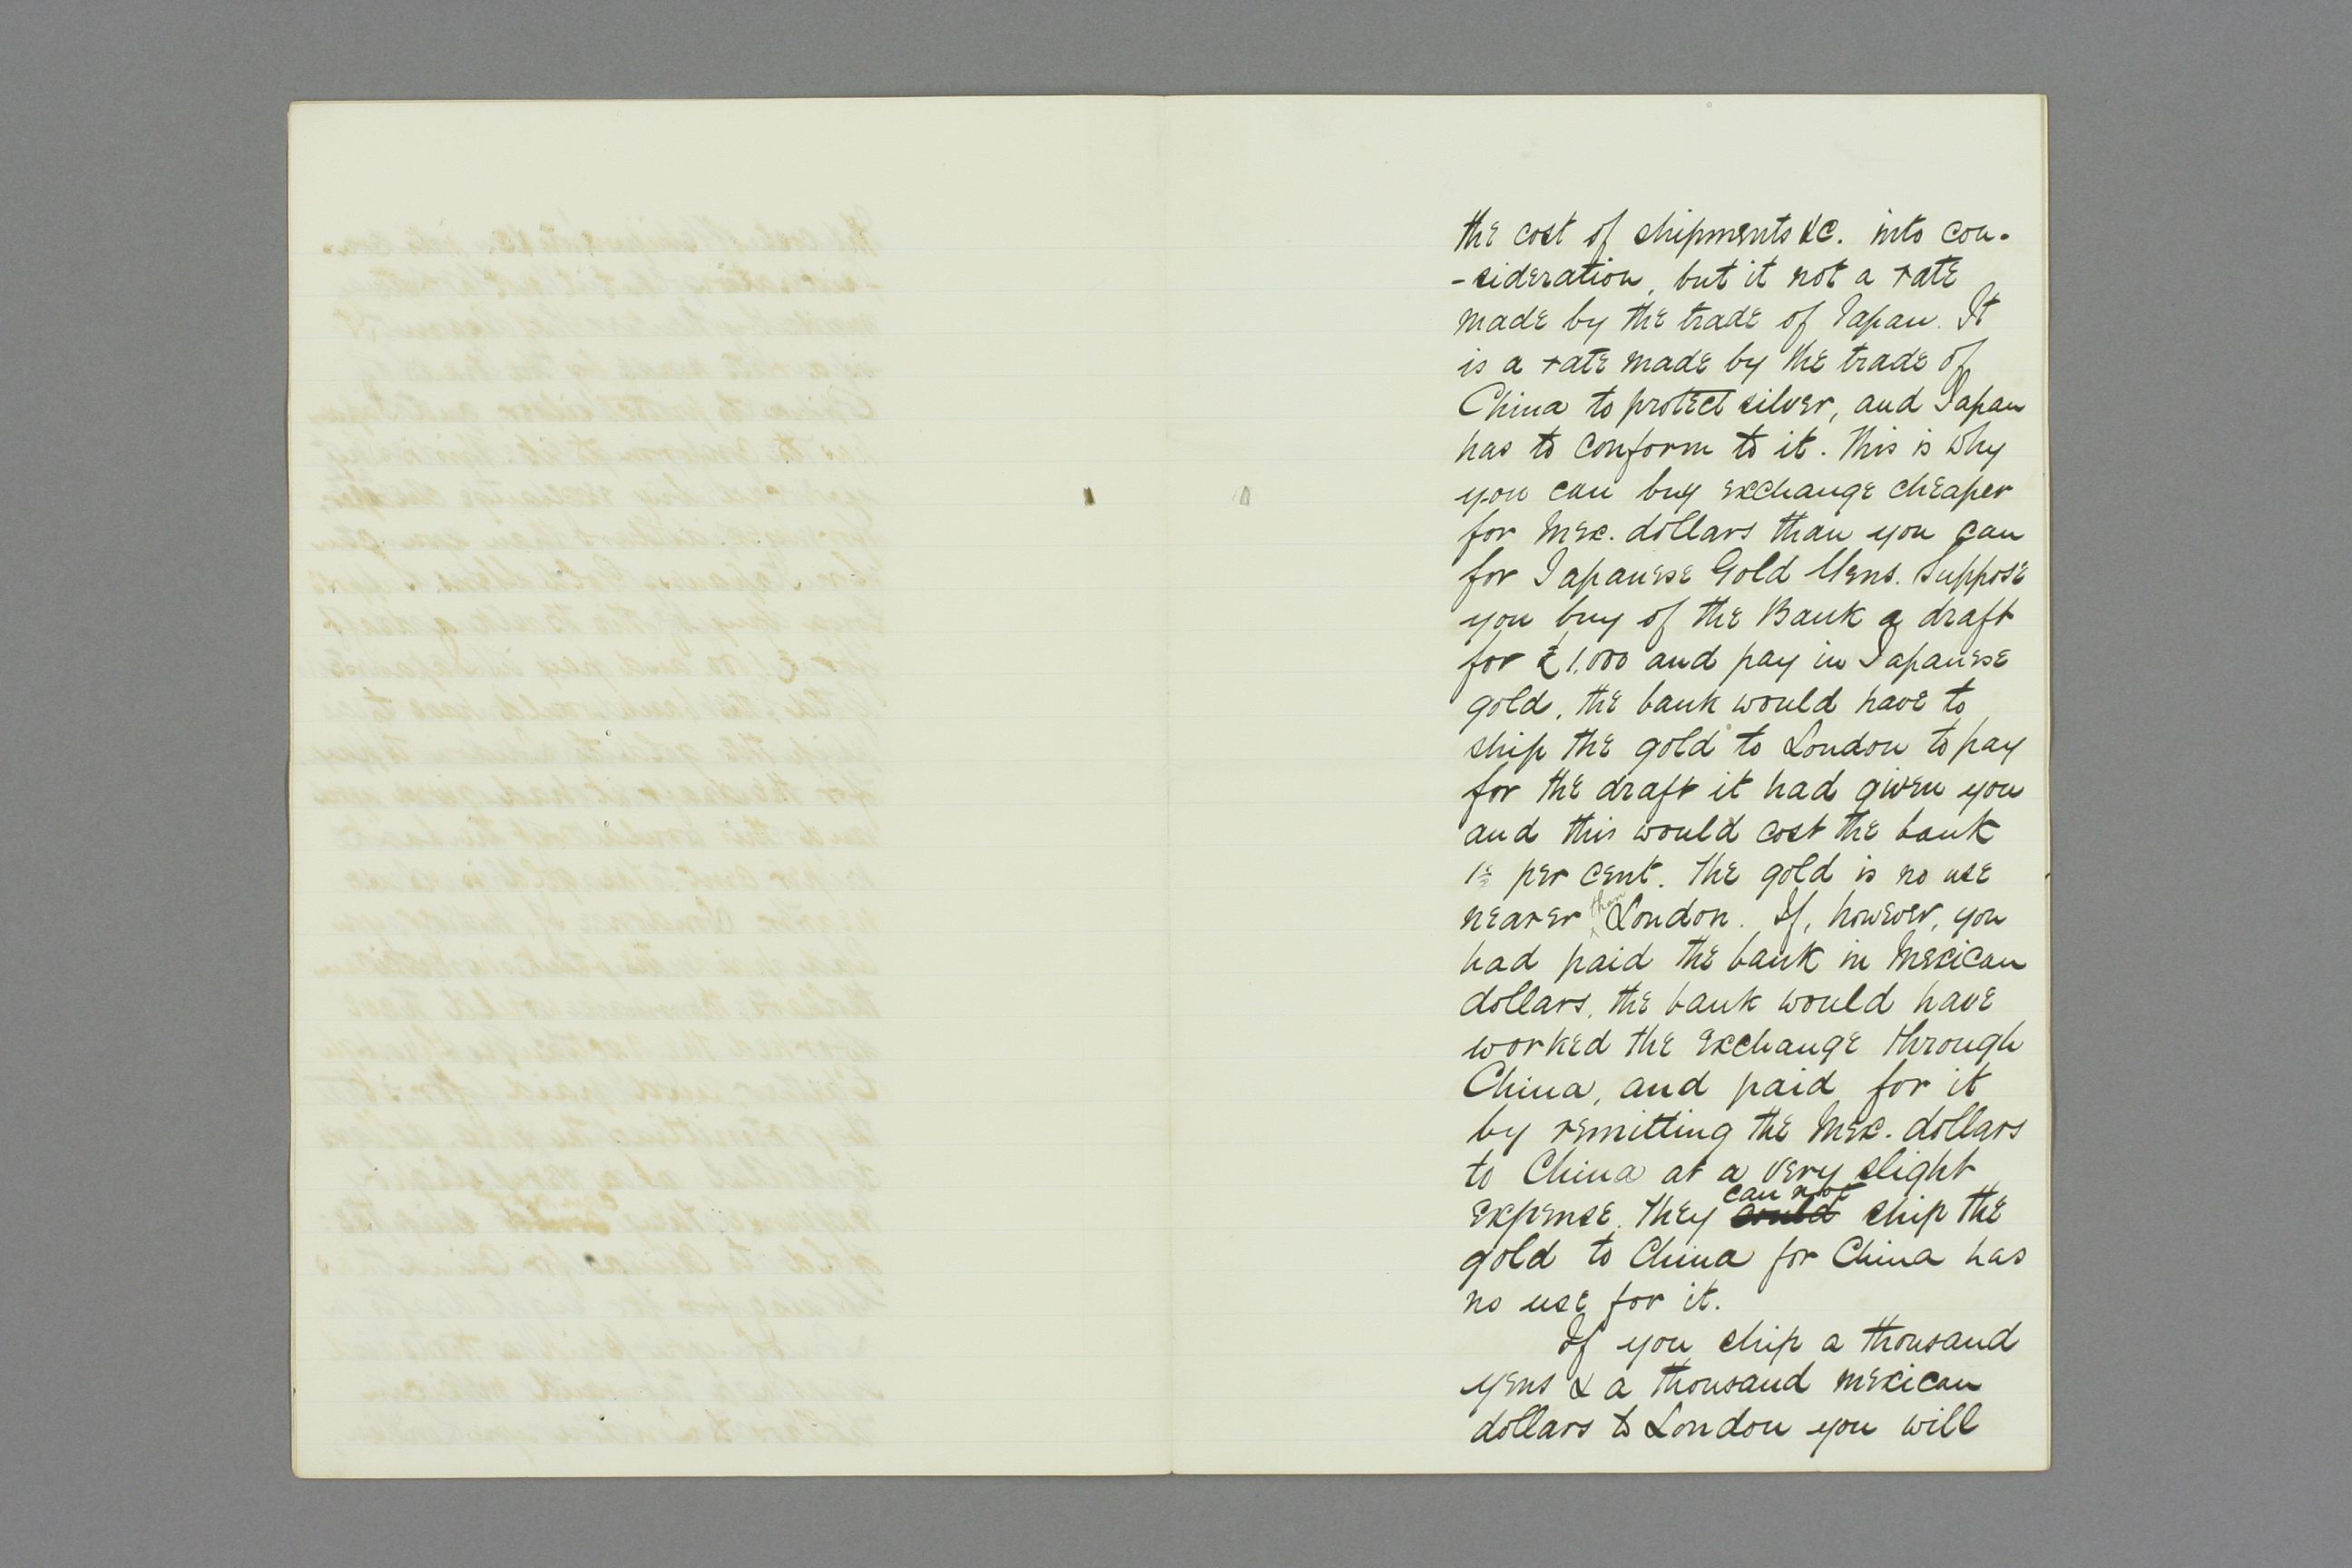 the cost of shipments &c. into con-
-sideration, but it not a rate
made by the trade of Japan. It
is a rate made by the trade of
China to protect silver, and Japan
has to conform to it. This is why
you can buy exchange cheaper
for Mex. dollars than you can
for Japanese Gold Yens. Suppose
you buy of the Bank a draft
for £1.000 and pay in Japanese
gold, the bank would have to
ship the gold to London to pay
for the draft it had given you
and this would cost the bank
1½ per cent. The gold is no use
nearer than London. If, however, you
had paid the bank in Mexican
dollars, the bank would have
worked the exchange through
China, and paid for it
by remitting the Mex. dollars
to China at a very slight
can not
expense. They could ship the
gold to China for China has
no use for it.
If you ship a thousand
yens & a thousand mexican
dollars to London you will